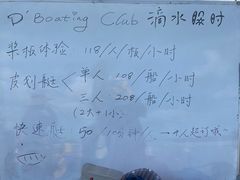 D' Boating Club 滴水瞬时
桨板体验: 118/人/板/小时
皮划艇 < 单人 108/船/小时
三人 208/船/小时
(2大+1小)
快速艇: 50/10分钟/ → 4人起订哦~